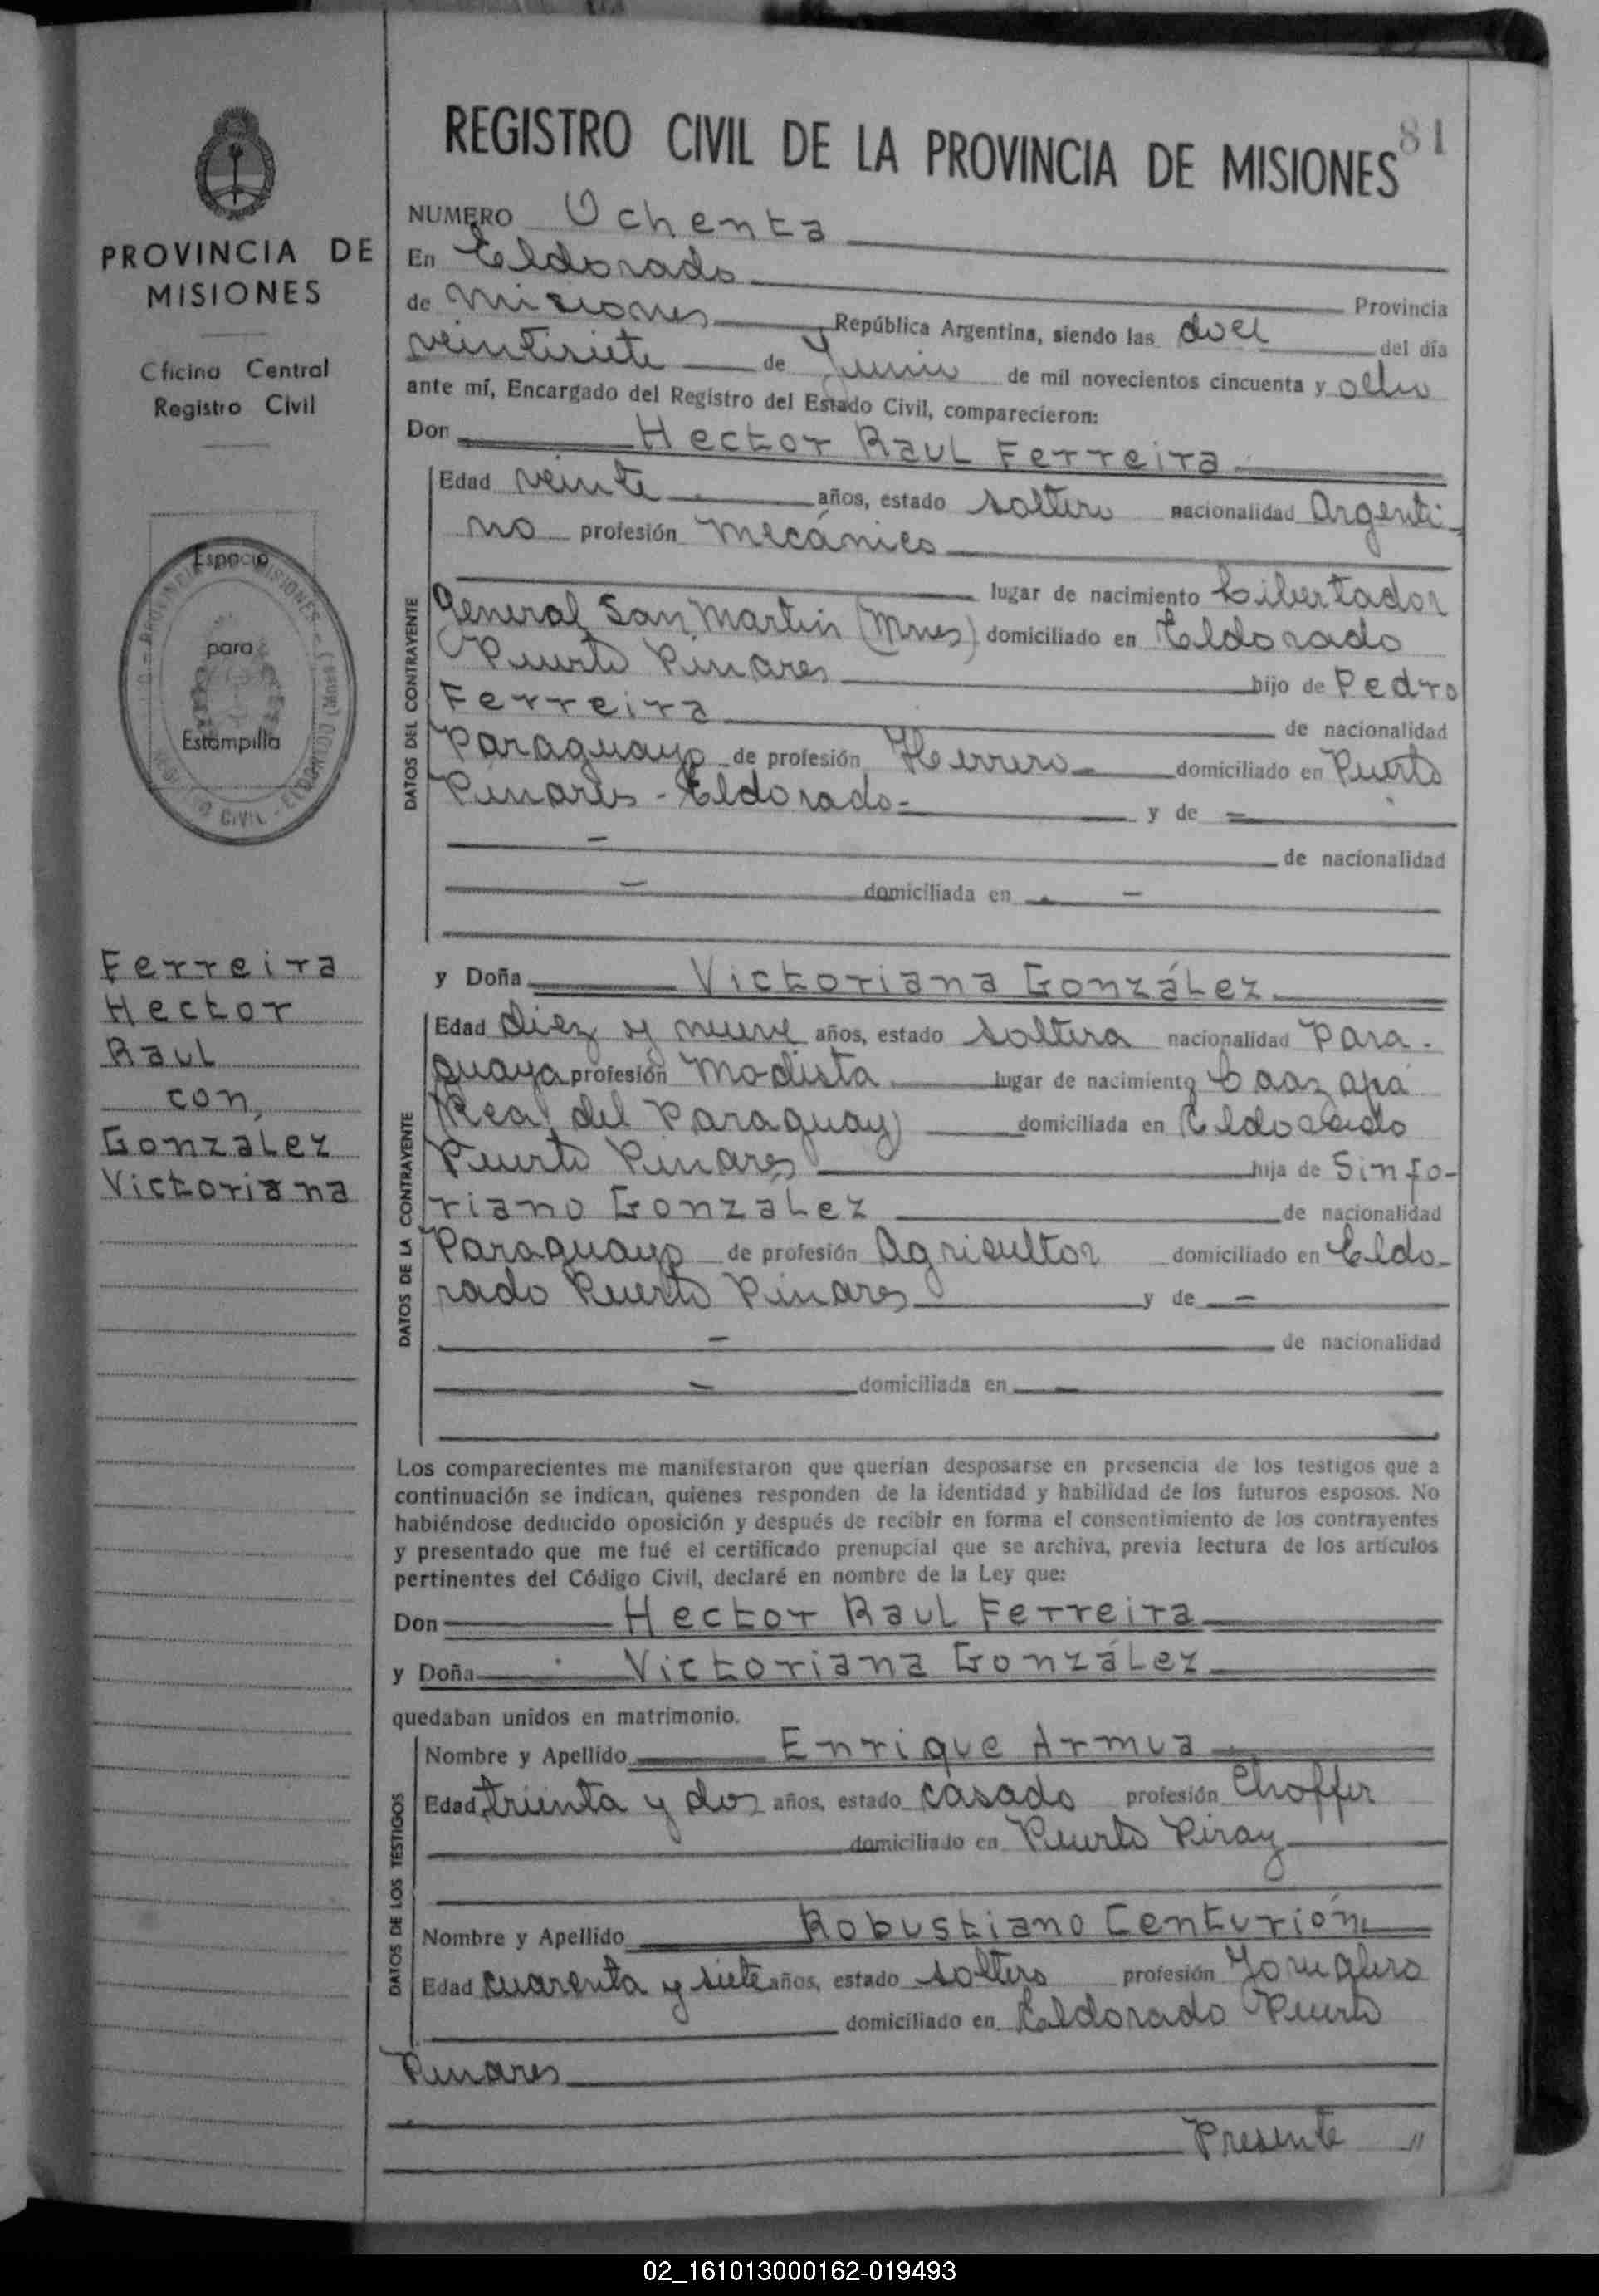 81
REGISTRO CIVIL DE LA PROVINCIA DE MISIONES
PROVINCIA DE
MISIONES
Oficina Central
Registro Civil
Espacio
para
Estampilla
PROVINCIA MISIONES
CIVIL ELDORADO
Ferreira
Hector
Raul
con
González
Victoriana
NUMERO Ochenta
En Eldorado Provincia
de Misiones República Argentina, siendo las doce del día
veintisiete de Junio de mil novecientos cincuenta y ocho
ante mí, Encargado del Registro del Estado Civil, comparecieron:
Don Hector Raul Ferreira
DATOS DEL CONTRAYENTE
Edad veinte años, estado soltero nacionalidad Argenti-
no profesión Mecánico
lugar de nacimiento Libertador
General San Martin (Mnes) domiciliado en Eldorado
Puerto Pinares hijo de Pedro
Ferreira de nacionalidad
Paraguayo de profesión Herrero domiciliado en Puerto
Pinares - Eldorado - y de -
- de nacionalidad
- domiciliada en -
y Doña Victoriana González
DATOS DE LA CONTRAYENTE
Edad diez y nueve años, estado soltera nacionalidad Para-
guaya profesión Modista lugar de nacimiento Caazapá
del Paraguay) domiciliada en Eldorado
Puerto Pinares hija de Sinfo-
riano González de nacionalidad
Paraguayo de profesión Agricultor domiciliado en Eldo-
rado Puerto Pinares y de -
- de nacionalidad
- domiciliada en -
Los comparecientes me manifestaron que querían desposarse en presencia de los testigos que a
continuación se indican, quienes responden de la identidad y habilidad de los futuros esposos. No
habiéndose deducido oposición y después de recibir en forma el consentimiento de los contrayentes
y presentado que me fué el certificado prenupcial que se archiva, previa lectura de los artículos
pertinentes del Código Civil, declaré en nombre de la Ley que:
Don Hector Raul Ferreira
y Doña Victoriana González
quedaban unidos en matrimonio.
DATOS DE LOS TESTIGOS
Nombre y Apellido Enrique Armua
Edad treinta y dos años, estado casado profesión Choffer
domiciliado en Puerto Piray
Nombre y Apellido Robustiano Centurión
Edad cuarenta y siete años, estado soltero profesión
domiciliado en Eldorado Puerto
Pinares
Presente "
02_161013000162-019493